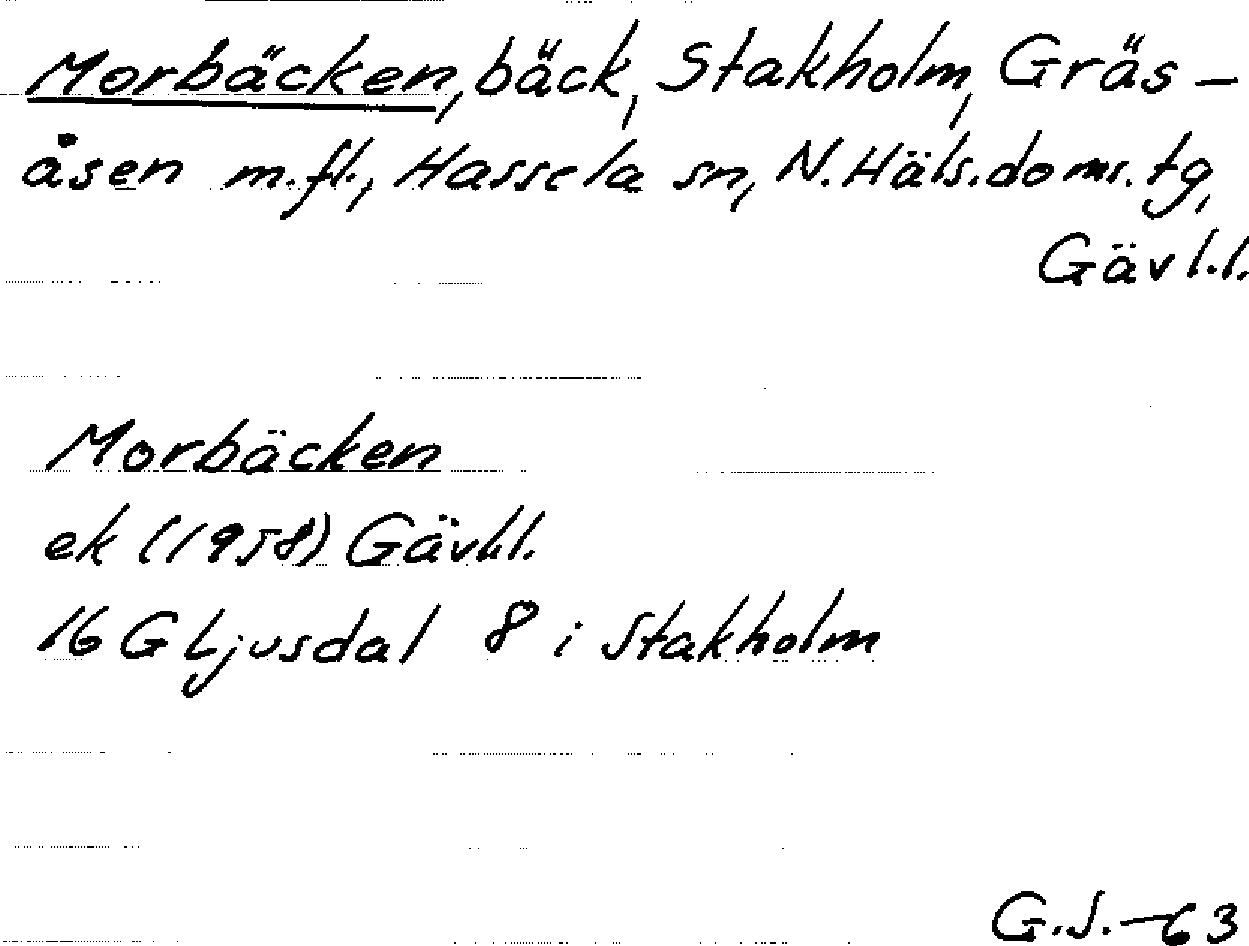 Morbäcken, bäck, Stakholm, Gräs-
åsen m.fl., Hassela sn, N.Häls.doms.tg,
Gävl.l.
Morbäcken
ek (1958) Gävl.l.
16 G Ljusdal 8 i Stakholm
G.J.-63